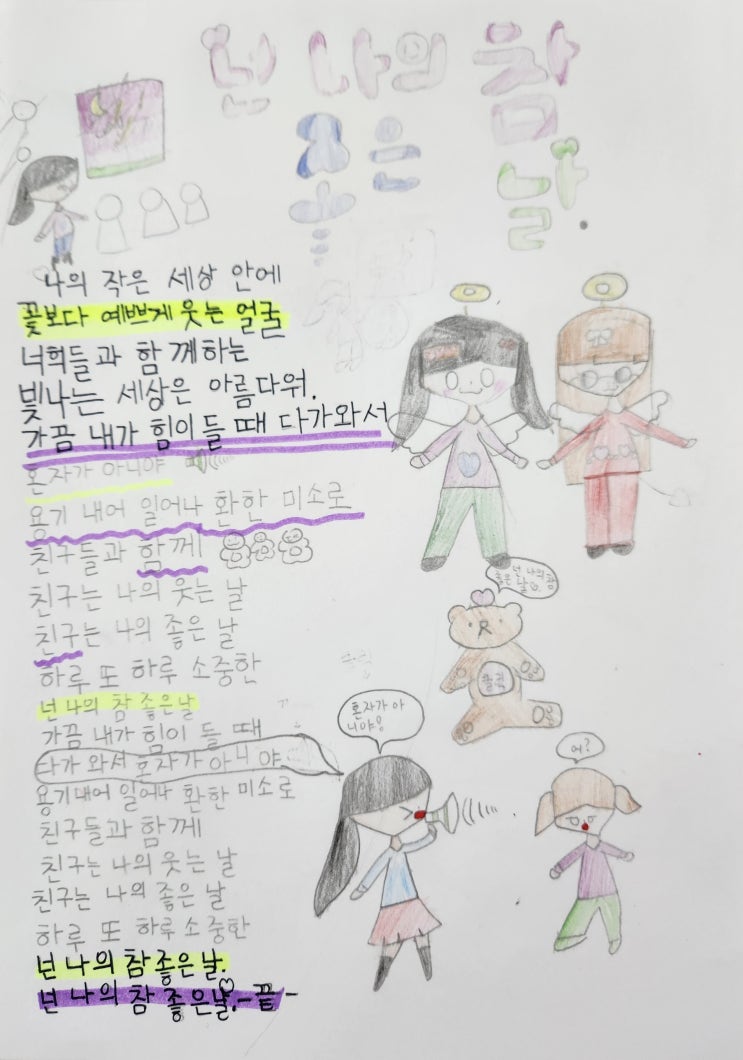 넌 나의 참
좋은 날.
나의 작은 세상 안에
꽃보다 예쁘게 웃는 얼굴
너희들과 함께하는
빛나는 세상은 아름다워.
가끔 내가 힘이 들 때 다가와서
혼자가 아니야
용기 내어 일어나 환한 미소로
친구들과 함께
친구는 나의 웃는 날
친구는 나의 좋은 날
하루 또 하루 소중한
넌 나의 참 좋은날
가끔 내가 힘이 들 때
다가 와서 혼자가 아니야
용기내어 일어나 환한 미소로
친구들과 함께
친구는 나의 웃는 날
친구는 나의 좋은 날
하루 또 하루 소중한
넌 나의 참 좋은날.
넌 나의 참 좋은날.-끝-
넌 나의 참
좋은 날
혼자가 아
니야!
어?